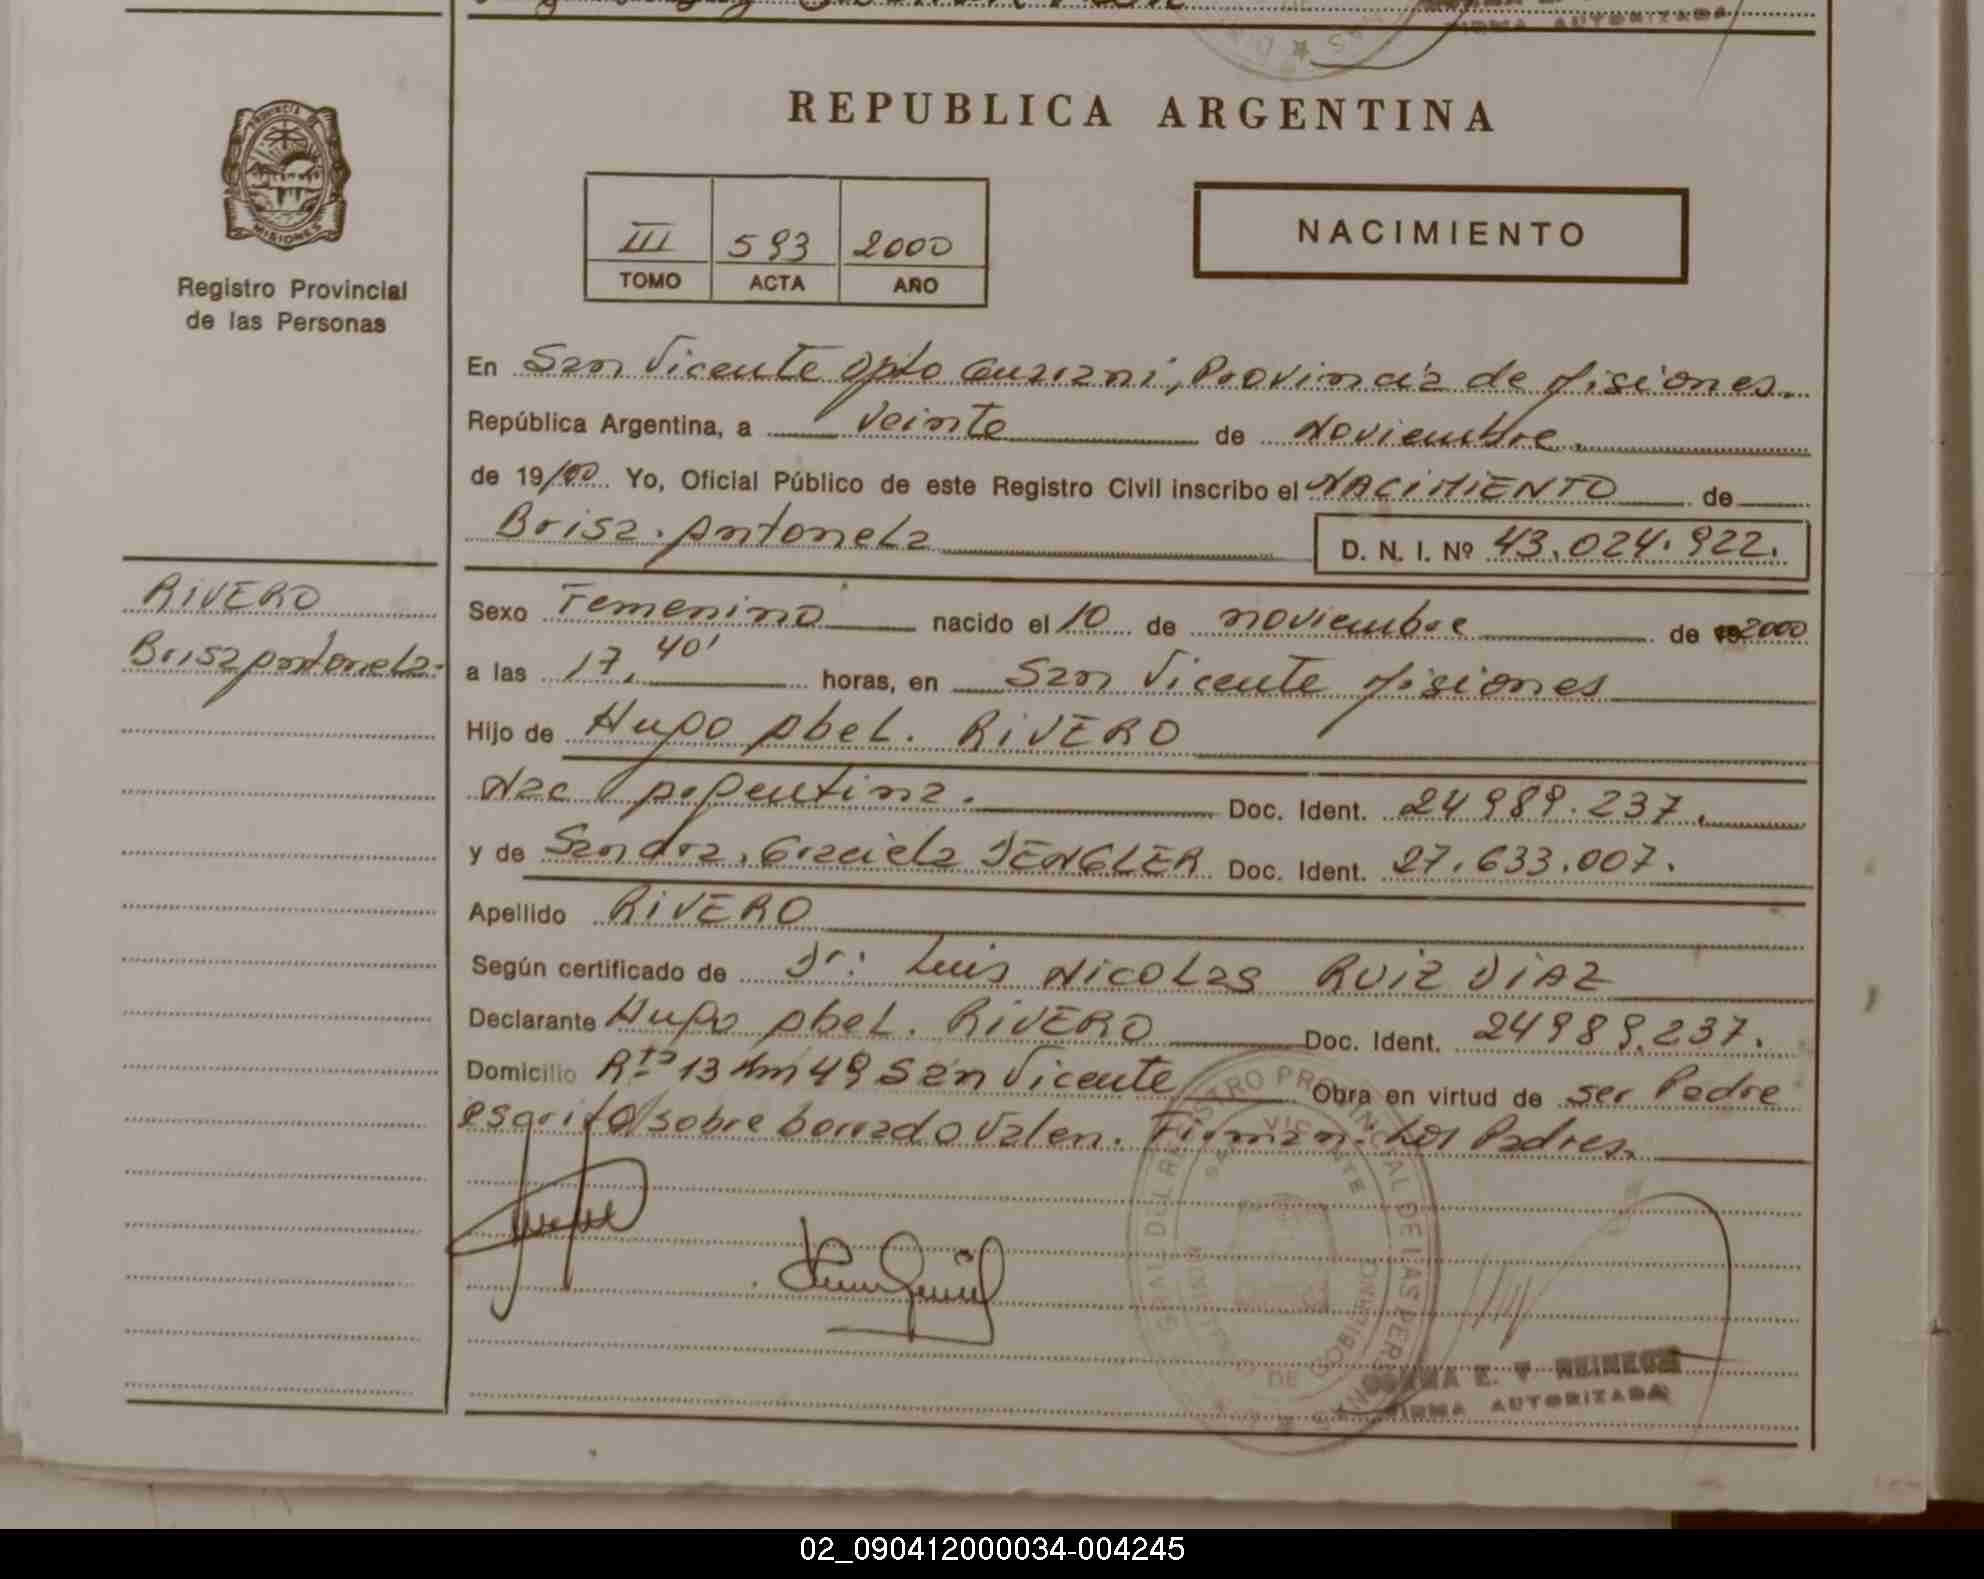 FIRMA AUTORIZADA
REPUBLICA ARGENTINA
PROVINCIA DE
MISIONES
Registro Provincial
de las Personas
III 593 2000
TOMO ACTA AÑO
NACIMIENTO
En San Vicente Dpto Guarani, Provincia de Misiones.
República Argentina, a veinte de Noviembre.
de 19/00. Yo, Oficial Público de este Registro Civil inscribo el NACIMIENTO de
Brisa. Antonela D. N. I. Nº 43.024.922.
RIVERO
Brisa Antonela.
Sexo Femenino nacido el 10 de noviembre de 2000
a las 17, 40' horas, en San Vicente Misiones
Hijo de Hugo Abel. RIVERO
Nac Argentina. Doc. Ident. 24989.237.
y de Sandra. Graciela DENGLER Doc. Ident. 27.633.007.
Apellido RIVERO
Según certificado de Dr: Luis Nicolas RUIZ DIAZ
Declarante Hugo Abel. RIVERO Doc. Ident. 24989.237.
Domicilio Rta 13 Km 49 San Vicente Obra en virtud de ser Padre
escrito/sobre borrado valen. Firman. Los Padres.
REGISTRO PROVINCIAL DE LAS PERSONAS
SAN VICENTE
MINISTERIO DE GOBIERNO
E. T. REINECK
FIRMA AUTORIZADA
02_090412000034-004245